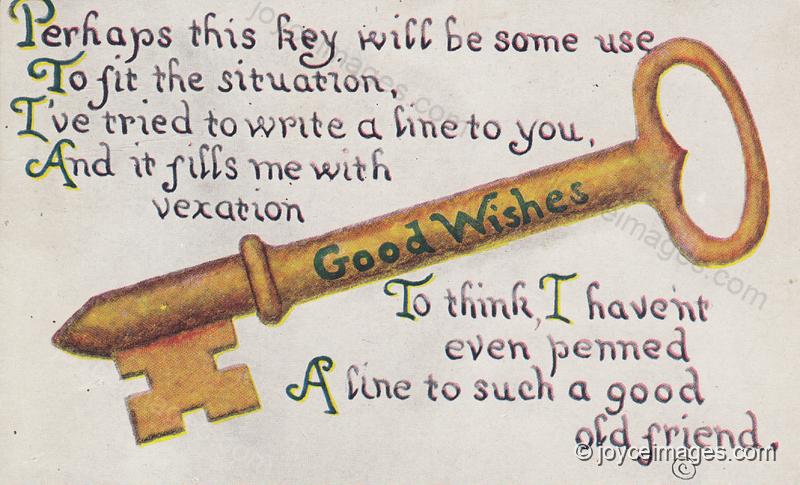 Perhaps this key will be some use
To fit the situation,
I've tried to write a line to you,
And it fills me with
vexation
Good Wishes
To think, I haven't
even penned
A line to such a good
old friend.
© joyceimages.com
©
joyceimages.com
joyceimages.com